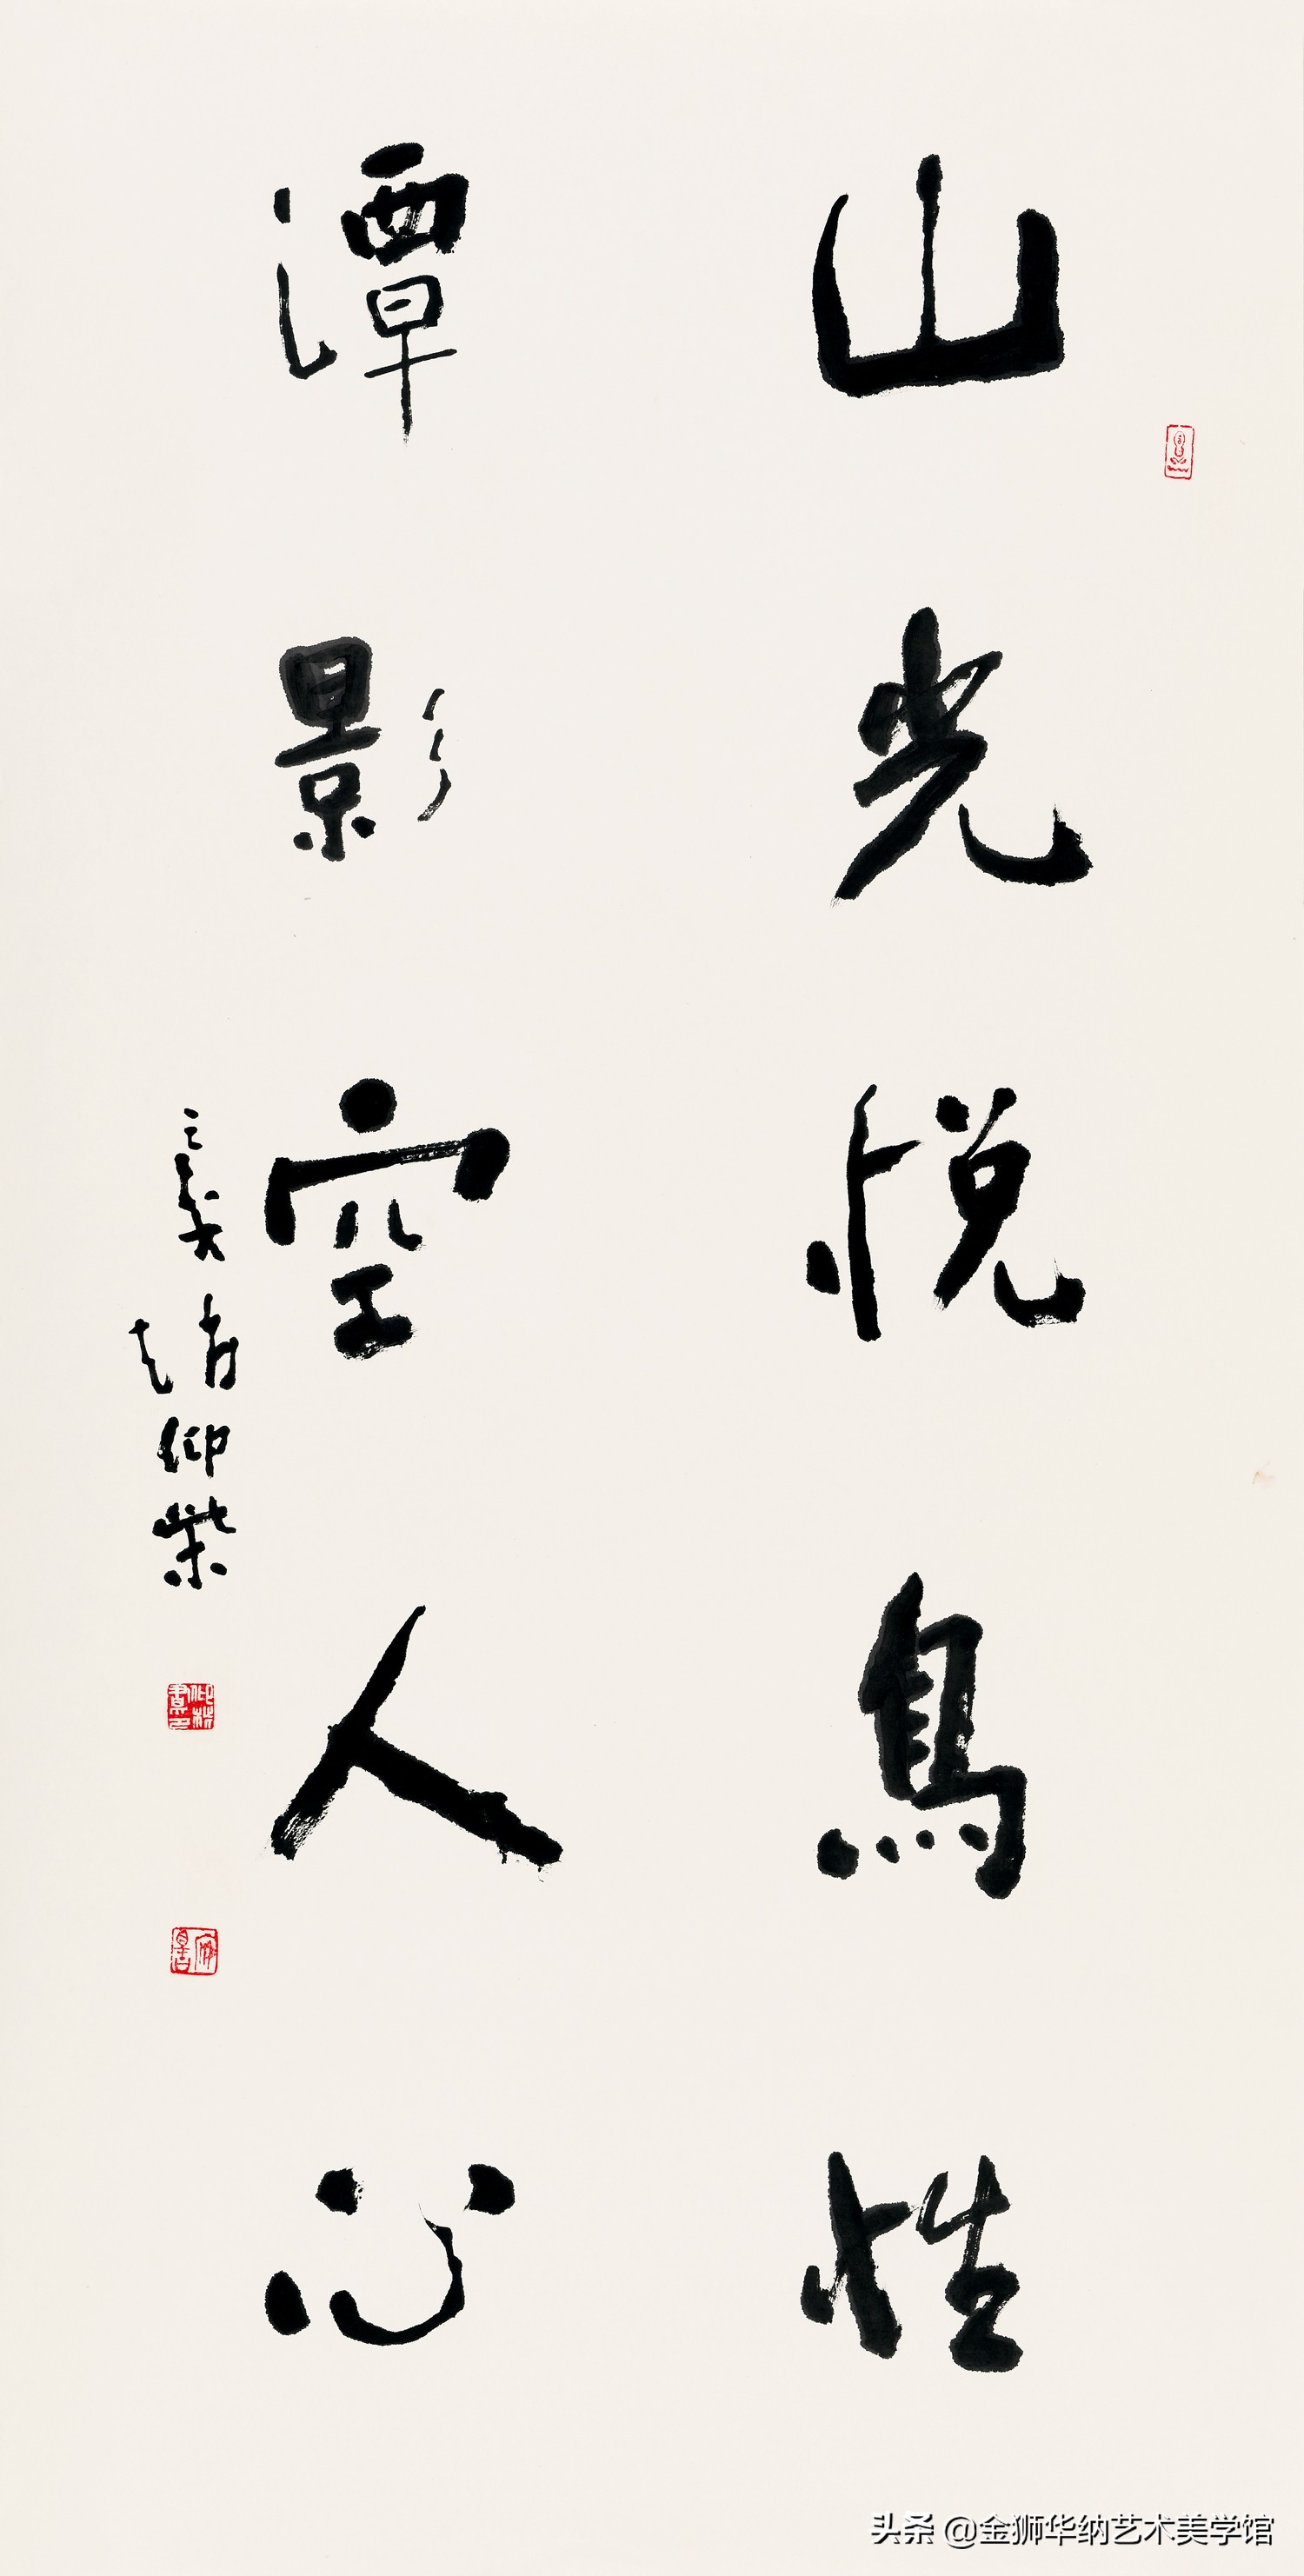 山光悦鳥性
潭影空人心
之義 趙仰柴
头条 @金狮华纳艺术美学馆